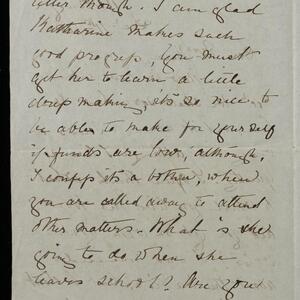 letter though. I am glad
Katharine makes such
good progress, you must
get her to learn a little
dress making, it's so nice to
be able to make for yourself
if funds are low, although,
I confess it's a bother, when
you are called away to attend
other matters. What is she
going to do when she
leaves school? Are you